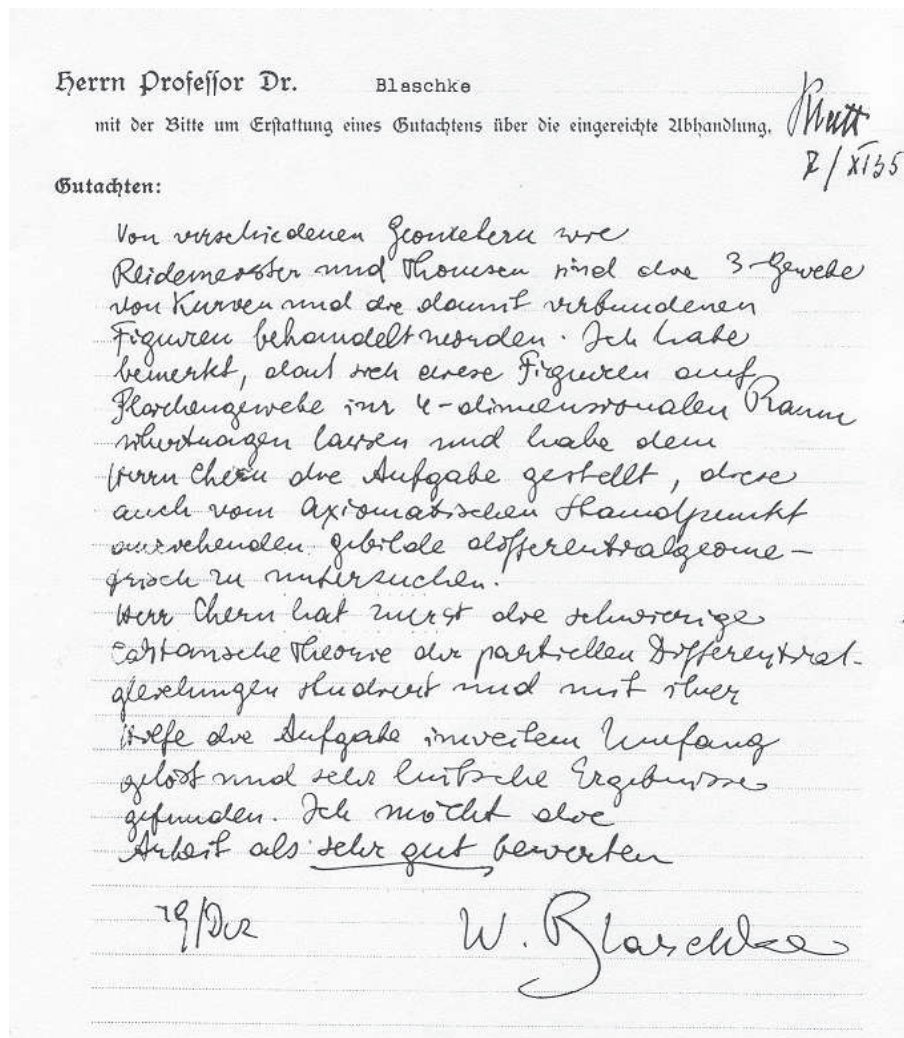 Herrn Professor Dr. Blaschke
mit der Bitte um Erstattung eines Gutachtens über die eingereichte Abhandlung.
7/XI35
Gutachten:
Von verschiedenen Geometern wie
Reidemeister und Thomsen sind die 3-Gewebe
von Kurven und die damit verbundenen
Figuren behandelt worden. Ich habe
bemerkt, dass sich diese Figuren auf
Flächengewebe im 4-dimensionalen Raum
übertragen lassen und habe dem
Herrn Chern die Aufgabe gestellt, diese
auch vom axiomatischen Standpunkt
anziehenden gebilde differentialgeome-
trisch zu untersuchen.
Herr Chern hat zuerst die schwierige
Cartansche Theorie der partiellen Differential-
gleichungen studiert und mit ihrer
Hilfe die Aufgabe in weitem Umfang
gelöst und sehr hübsche Ergebnisse
gefunden. Ich möcht die
Arbeit als sehr gut bewerten
19/Dez W. Blaschke